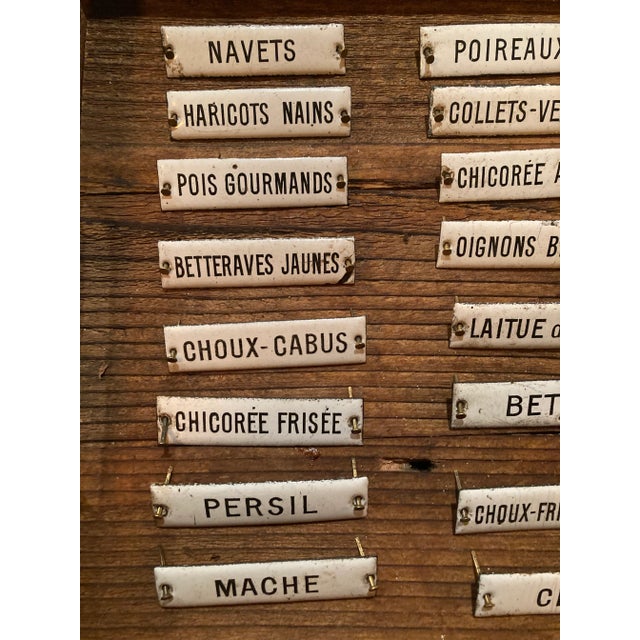 NAVETS
HARICOTS NAINS
POIS GOURMANDS
BETTERAVES JAUNES
CHOUX-CABUS
CHICORÉE FRISÉE
PERSIL
MACHE
POIREAUX
COLLETS-VE
CHICORÉE
OIGNONS B
LAITUE
BET
CHOUX-FRI